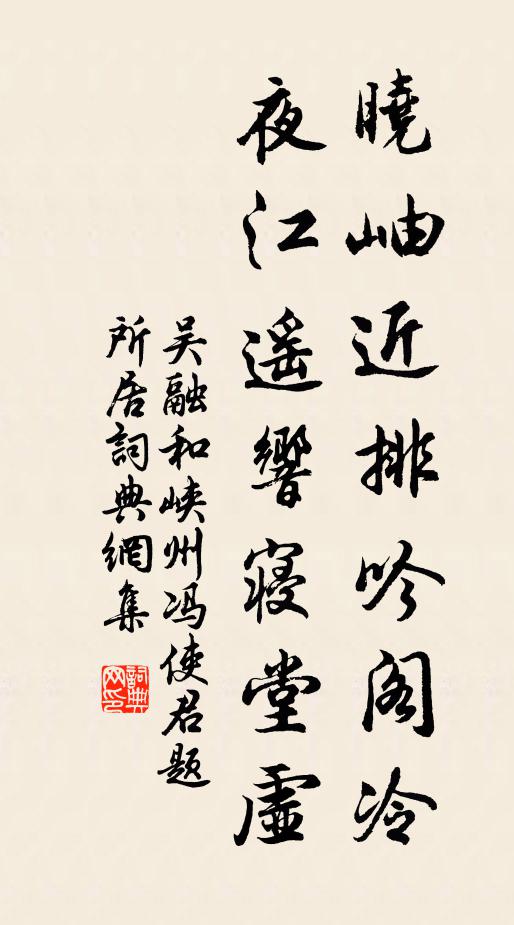 曉岫近排吟阁冷
夜江遥響寝堂虛
吴融和峡州冯使君题
所居詞典網集
詞典网印